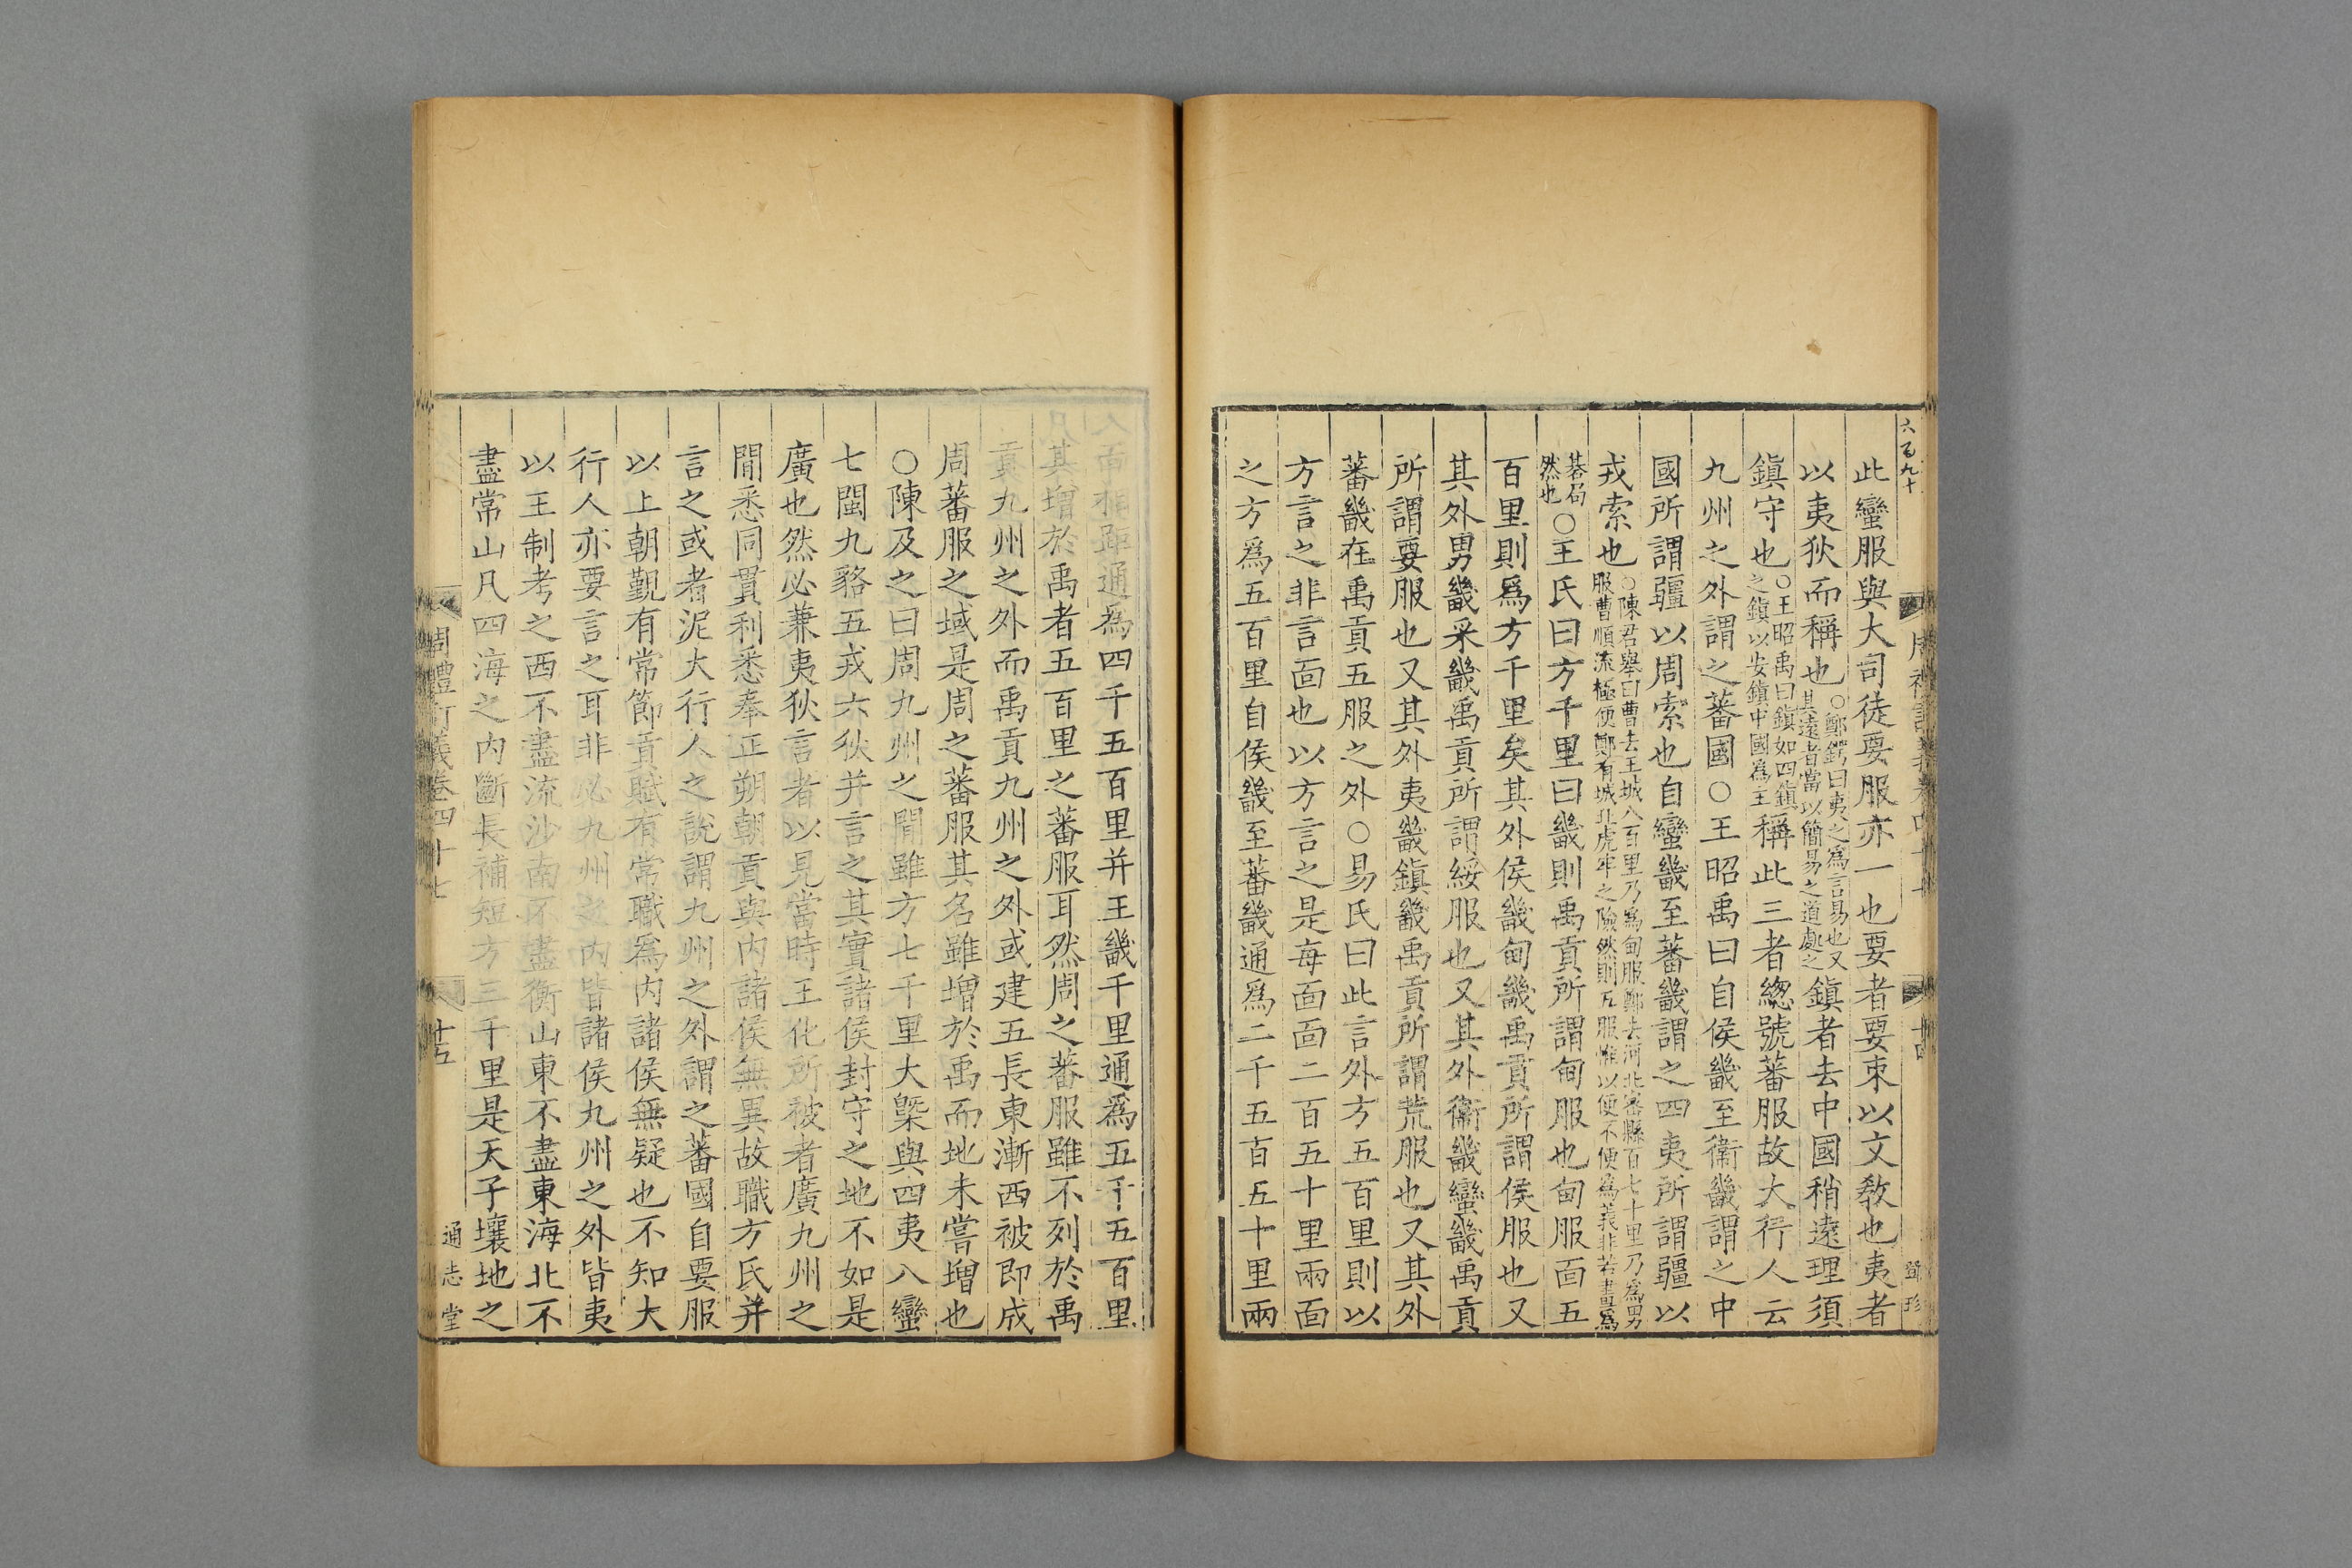 六百九十
此蠻服與大司徒要服亦一也要者要束以文敎也夷者
以夷狄而稱也○鄭鍔曰夷之爲言易也又其遠者當以簡易之道處之鎮者去中國稍遠理須
鎮守也○王昭禹曰鎮如四鎮之鎮以安鎮中國爲王稱此三者緫號蕃服故大行人云
九州之外謂之蕃國○王昭禹曰自侯畿至衞畿謂之中
國所謂疆以周索也自蠻畿至蕃畿謂之四夷所謂疆以
戎索也○陳君舉曰曹去王城八百里乃爲甸服鄭去河北密縣百七十里乃爲男服曹順流極便鄭有城北虎牢之險然則五服惟以便不便爲義非若畫爲
棊局然也○王氏曰方千里曰畿則禹貢所謂甸服也甸服面五
百里則爲方千里矣其外侯畿甸畿禹貢所謂侯服也又
其外男畿采畿禹貢所謂綏服也又其外衞畿蠻畿禹貢
所謂要服也又其外夷畿鎮畿禹貢所謂荒服也又其外
蕃畿在禹貢五服之外○易氏曰此言外方五百里則以
方言之非言面也以方言之是每面面二百五十里兩面
之方爲五百里自侯畿至蕃畿通爲二千五百五十里兩
鄧珍
面相距通爲四千五百里并王畿千里通爲五千五百里
其增於禹者五百里之蕃服耳然周之蕃服雖不列於禹
貢九州之外而禹貢九州之外或建五長東漸西被即成
周蕃服之域是周之蕃服其名雖增於禹而地未嘗增也
○陳及之曰周九州之閒雖方七千里大槩與四夷八蠻
七閩九貉五戎六狄并言之其實諸侯封守之地不如是
廣也然必兼夷狄言者以見當時王化所被者廣九州之
閒悉同貫利悉奉正朔朝貢與内諸侯無異故職方氏并
言之或者泥大行人之說謂九州之外謂之蕃國自要服
以上朝覲有常節貢賦有常職爲内諸侯無疑也不知大
行人亦要言之耳非必九州之内皆諸侯九州之外皆夷
以王制考之西不盡流沙南不盡衡山東不盡東海北不
盡常山凡四海之内斷長補短方三千里是天子壤地之
周禮訂義卷四十七
十五
通志堂